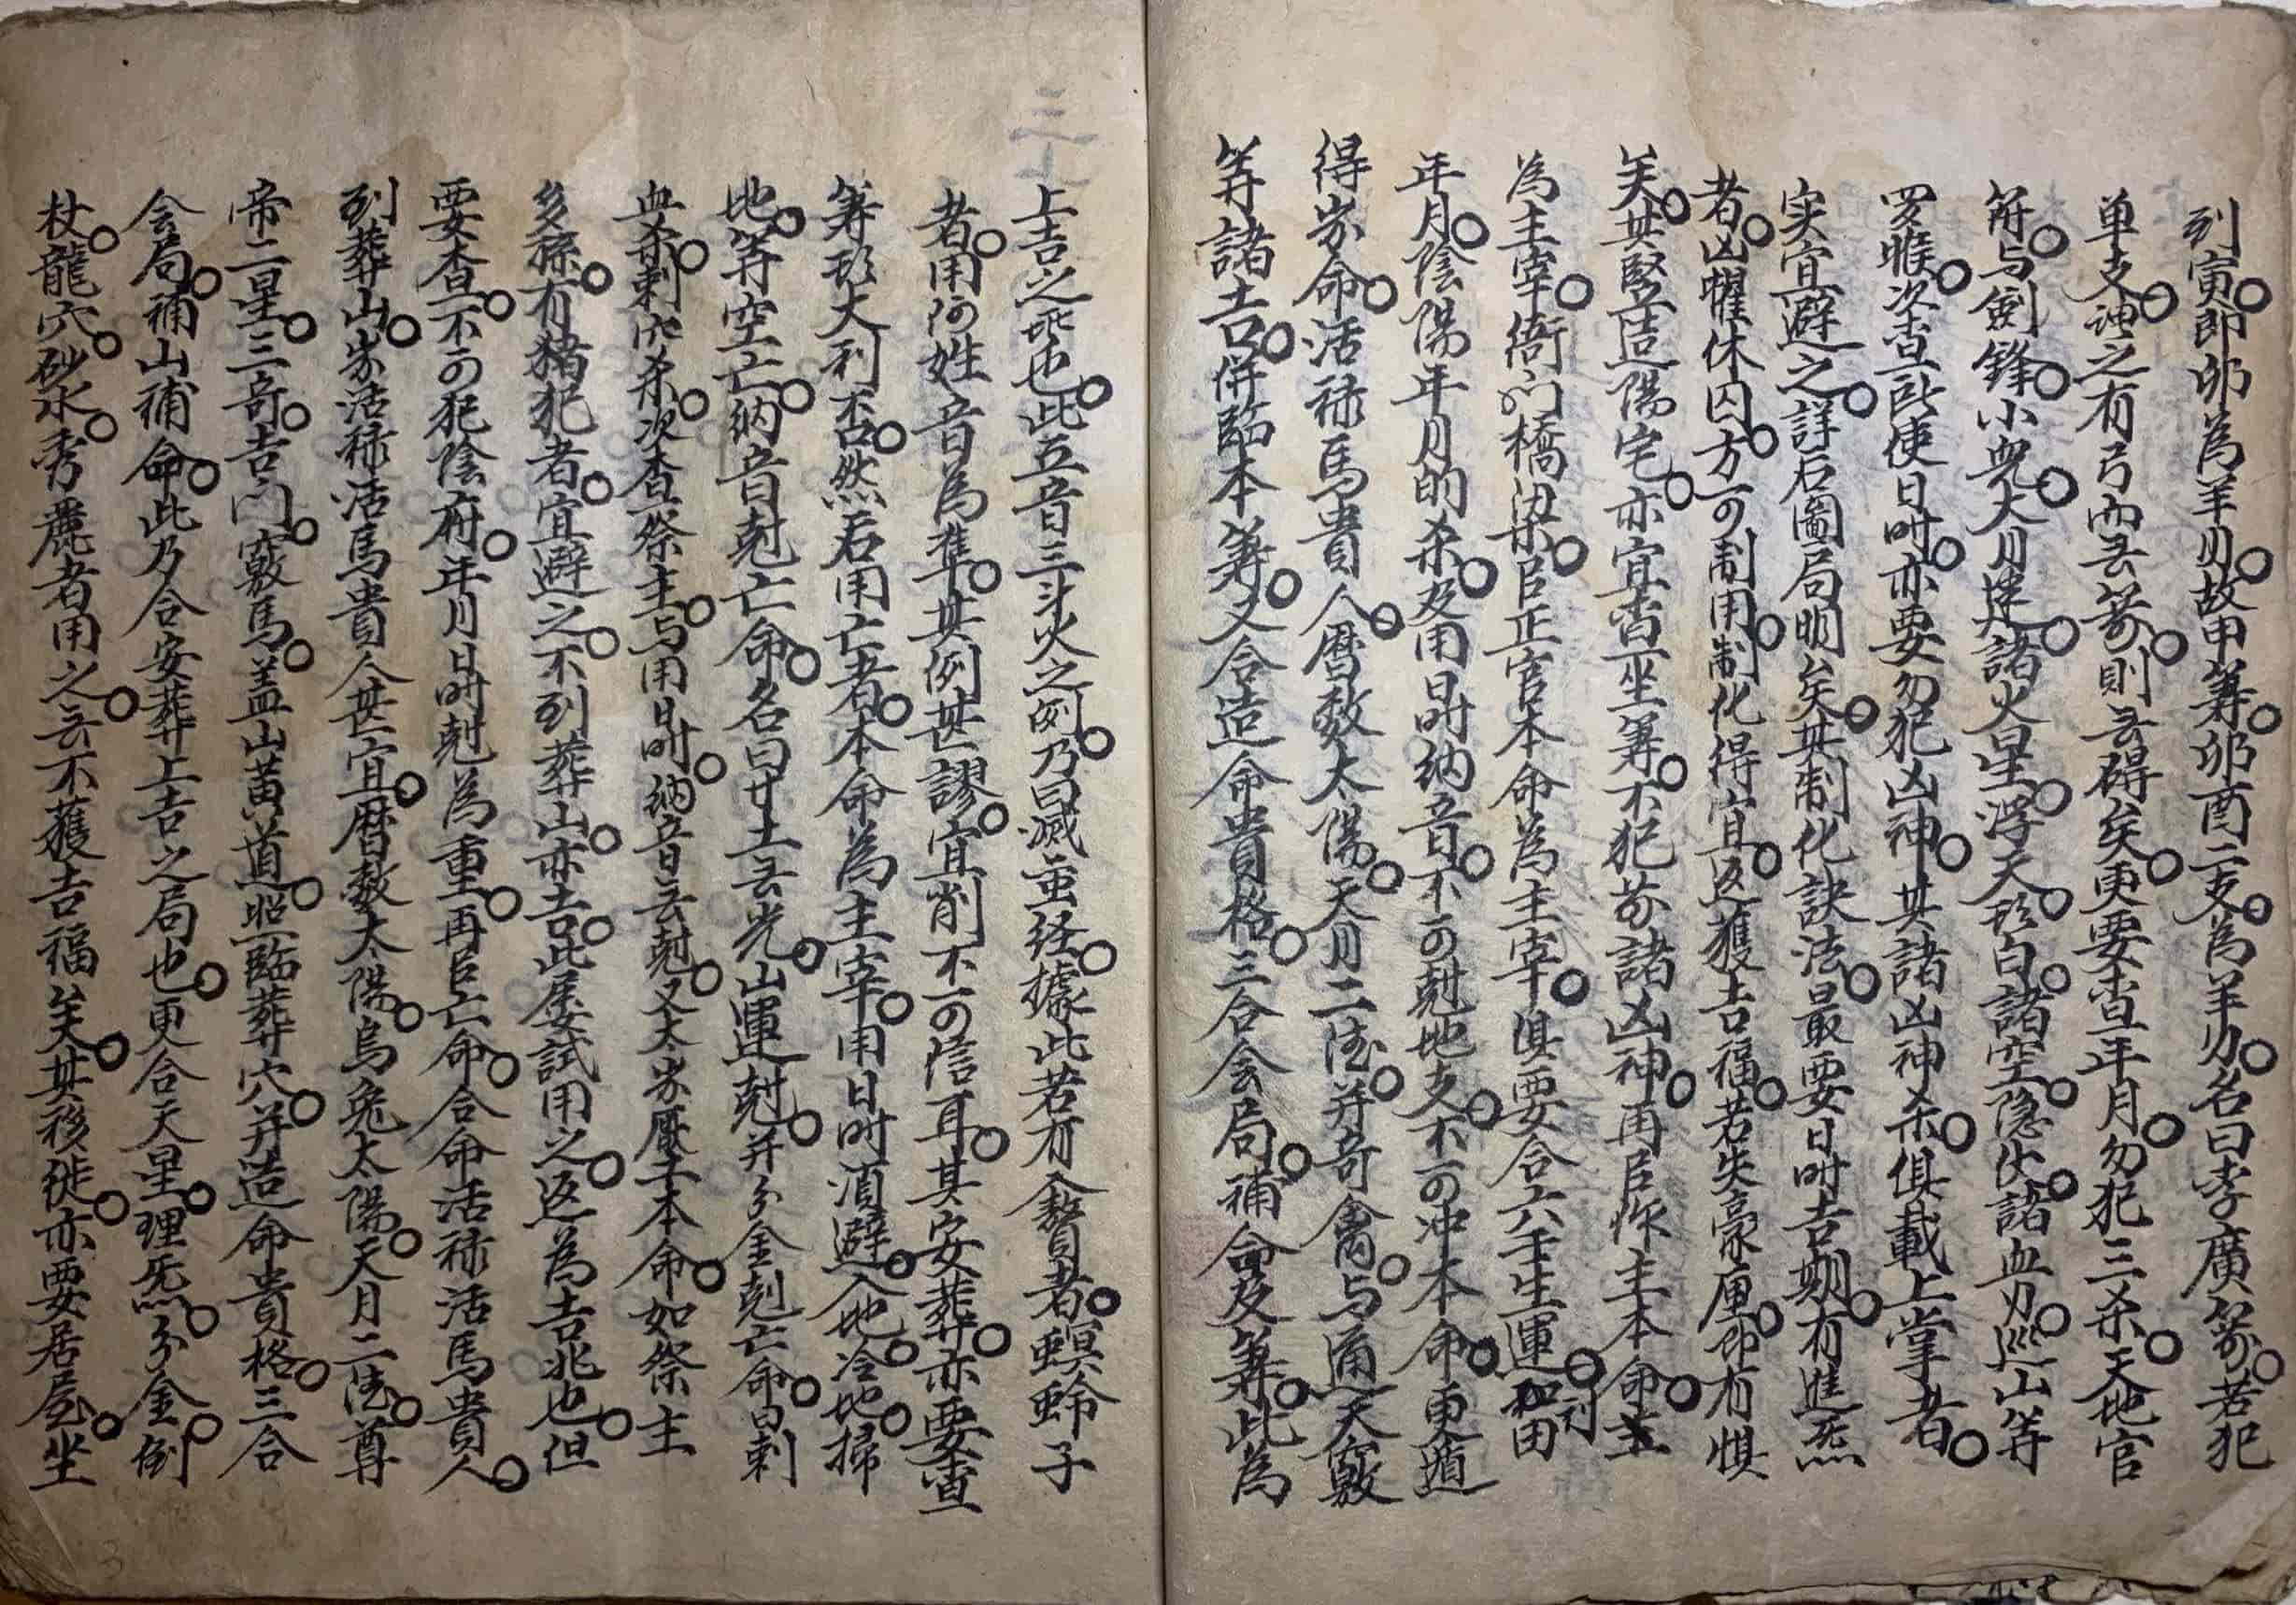 到寅。即卯為羊刃。故甲筭。卯酉二支。為羊刃。名曰李廣箭。若犯
单支神。之有弓而无箭。則无碍矣。更要查年月。勿犯三杀。天地官
符。与劍鋒。小児。大月建。諸火星。浮天。形白。諸空。隐伏。諸血刃。巡山等
罗睺。次查所使日时。亦要勿犯凶神。其諸凶神杀。俱載上掌者。
实宜避之。詳后圖局明矣。其制化訣法。最要日时吉期。有進炁
者。凶曜休囚。方可制用。制化得宜。返獲吉福。若失豪厘。即有惧
矣。其竪造陽宅。亦宜查坐筭。不犯前諸凶神。再㠯作主本命。主
為主宰。衙门橋梁。㠯正官本命為主宰。俱要合六壬生運。和田刂
年月。陰陽年月的杀。及用日时納音。不可尅地支。不可冲本命。更遁
得岁命。活祿馬貴人。曆数太陽。天月二德。并奇禽。与通天竅
筭諸吉。併臨本筭。又合造命貴格。三合会局。補命及筭。此為
三七
上吉之乖也。此五音三斗火之例。乃曰滅蛮経。據此若有瞽者。螟蛉子
者。用何姓音為準。其例甚謬。宜削不可信耳。其安葬。亦要查
筭形大利否。然后用亡者。本命為主宰。用日时須避。入地。冷地。掃
地。等空亡。納音尅亡命。名曰廿土无光。山運尅。并分金尅亡命。曰剌
血杀。剌穴杀。次查祭主。与用日时。納音无尅。又太岁壓本命。如祭主
多孫。有猪犯者。宜避之。不到葬山。亦吉。此屢試用之。返為吉兆也。但
要查。不可犯陰府。年月日时尅為重。再㠯亡命。合命活祿活馬貴人。
到葬山。岁活祿活馬貴人甚宜。曆数太陽。烏兔太陽。天月二德。尊
帝二星。三奇。吉门。竅馬。盖山黄道。照臨葬穴。并造命貴格。三合
会局。補山補命。此乃合安葬上吉之局也。更合天星。理炁。分金。倒
杖。龍穴。砂水。秀麗者用之。无不獲吉福矣。其移徙。亦要居屋。坐